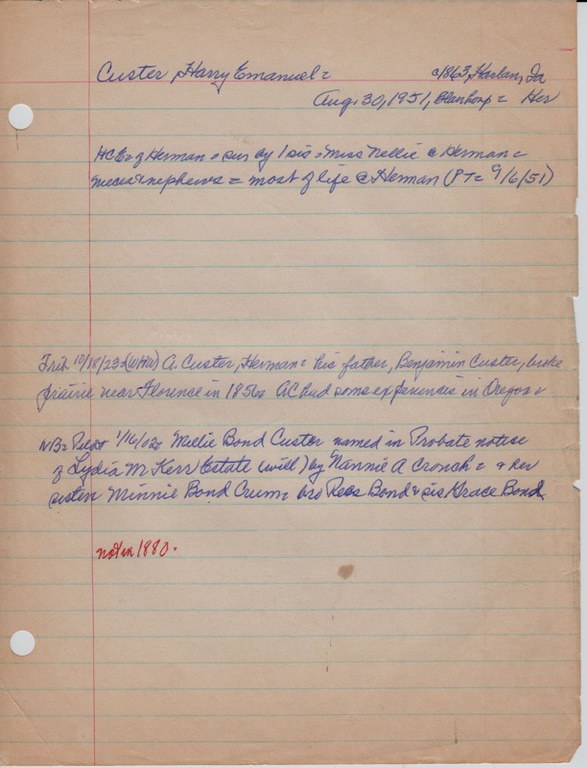 Custer, Harry Emanuel = c1863, Harlan, Ia
Aug. 30, 1951, = Her
HCE = of Herman = sur by 1 sis = Miss Nellie @ Herman =
nieces & nephews = most of life @ Herman (PT = 9/6/51)
Trib 10/18/23 = (WHW) A. Custer, Herman = his father, Benjamin Custer, broke
prairie near Florence in 1856 = AC had some experiences in Oregon =
NB = Pilot 1/16/02 = Bond Custer named in Probate notice
of Lydia M Kerr Estate (will) by Nannie A Cronch = + her
sisten Minnie Bond Crum = bro Rees Bond & sis Grace Bond.
not in 1880.